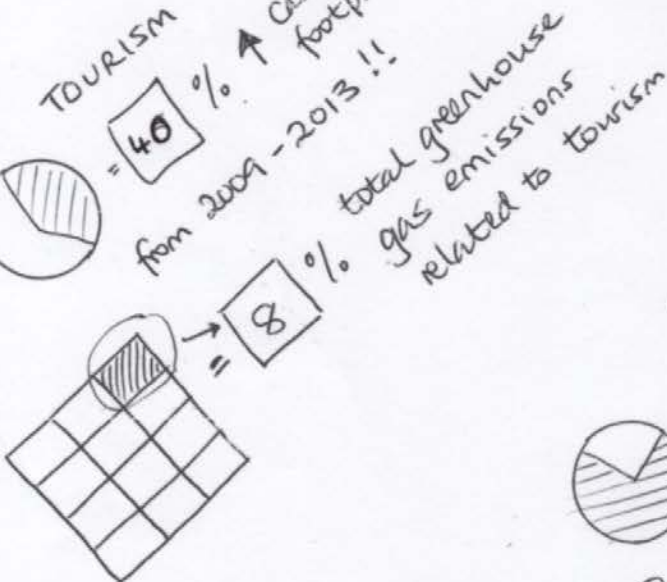 TOURISM
= 40 % ↑
from 2009 - 2013 !!
= 8 % total greenhouse
gas emissions
related to tourism